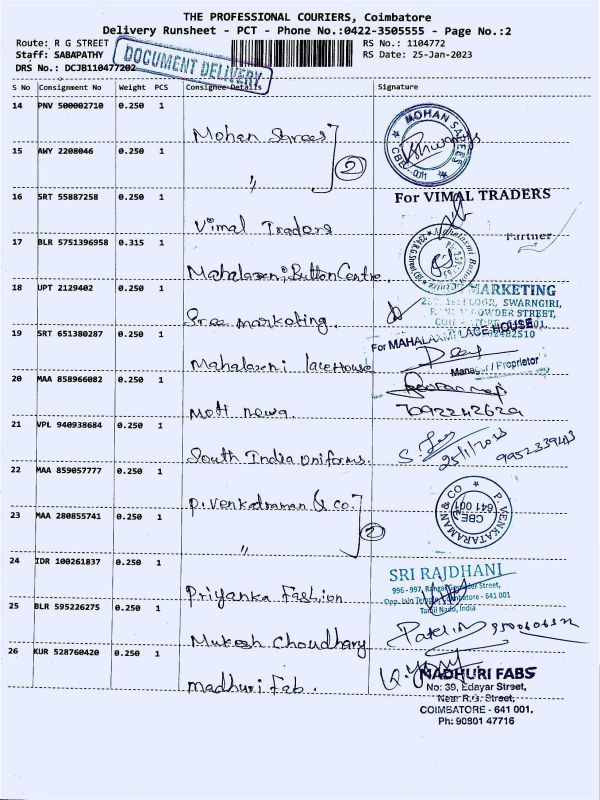 THE PROFESSIONAL COURIERS, Coimbatore
Delivery Runsheet - PCT - Phone No.:0422-3505555 - Page No.:2
Route: R G STREET
RS No.: 1104772
Staff: SABAPATHY
RS Date: 25-Jan-2023
DRS No.: DCJB110477202
DOCUMENT DELIVERY
S No Consignment No Weight PCS Consignee Details Signature
14 PNV 500002710 0.250 1
Mohan Sarees
MOHAN SAREES
15 AWY 2208046 0.250 1
" 2
16 SRT 55887258 0.250 1
For VIMAL TRADERS
Vimal Traders
Partner
17 BLR 5751396958 0.315 1
Mahalaxmi Button Centre
18 UPT 2129402 0.250 1
MARKETING
SWARNGIRI,
STREET,
Sree marketing.
19 SRT 651380287 0.250 1
For MAHALAXMI LACE HOUSE
Mahalaxmi lace House
Manager / Proprietor
20 MAA 858966082 0.250 1
7092242629
21 VPL 940938684 0.250 1
25/1/2023
South India uniforms.
22 MAA 859057777 0.250 1
P. Venkatraman & co.
P. VENKATARAMAN & CO
CBE
641 001
23 MAA 280855741 0.250 1
" 2
24 IDR 100261837 0.250 1
SRI RAJDHANI
996 - 997, Street,
Opp. Jain Coimbatore - 641 001
Tamil Nadu, India
Priyanka Fashion
25 BLR 595226275 0.250 1
Mukesh Choudhary
26 KUR 528760420 0.250 1
Madhuri Fab.
MADHURI FABS
No: 39, Edayar Street,
Near R.G. Street,
COIMBATORE - 641 001.
Ph: 90801 47716